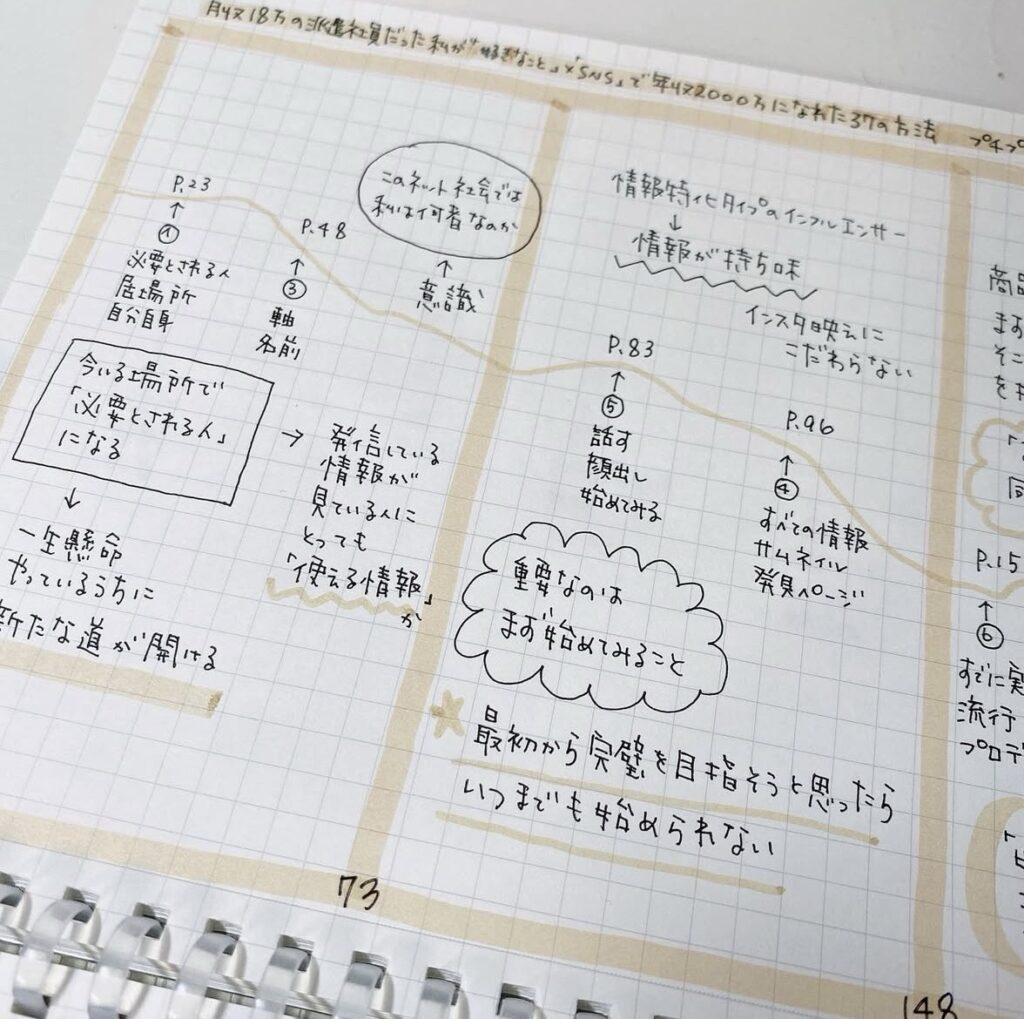 月収18万の派遣社員だった私が「好きなこと」×「SNS」で年収2000万になれた37の方法 プチプ
P.23
①
必要とされる人
居場所
自分自身
P.48
③
軸
名前
このネット社会では
私は何者なのか
意識
今いる場所で
「必要とされる人」
になる
一生懸命
やっているうちに
新たな道が開ける
発信している
情報が
見ている人に
とっても
「使える情報」
か
73
情報特化タイプのインフルエンサー
情報が持ち味
インスタ映えに
こだわらない
P.83
⑤
話す
顔出し
始めてみる
P.96
④
すべての情報
サムネイル
発見ページ
重要なのは
まず始めてみること
最初から完璧を目指そうと思ったら
いつまでも始められない
148
商品
まず
そこ
を
同
P.15
⑥
すでに実
流行
プロデ